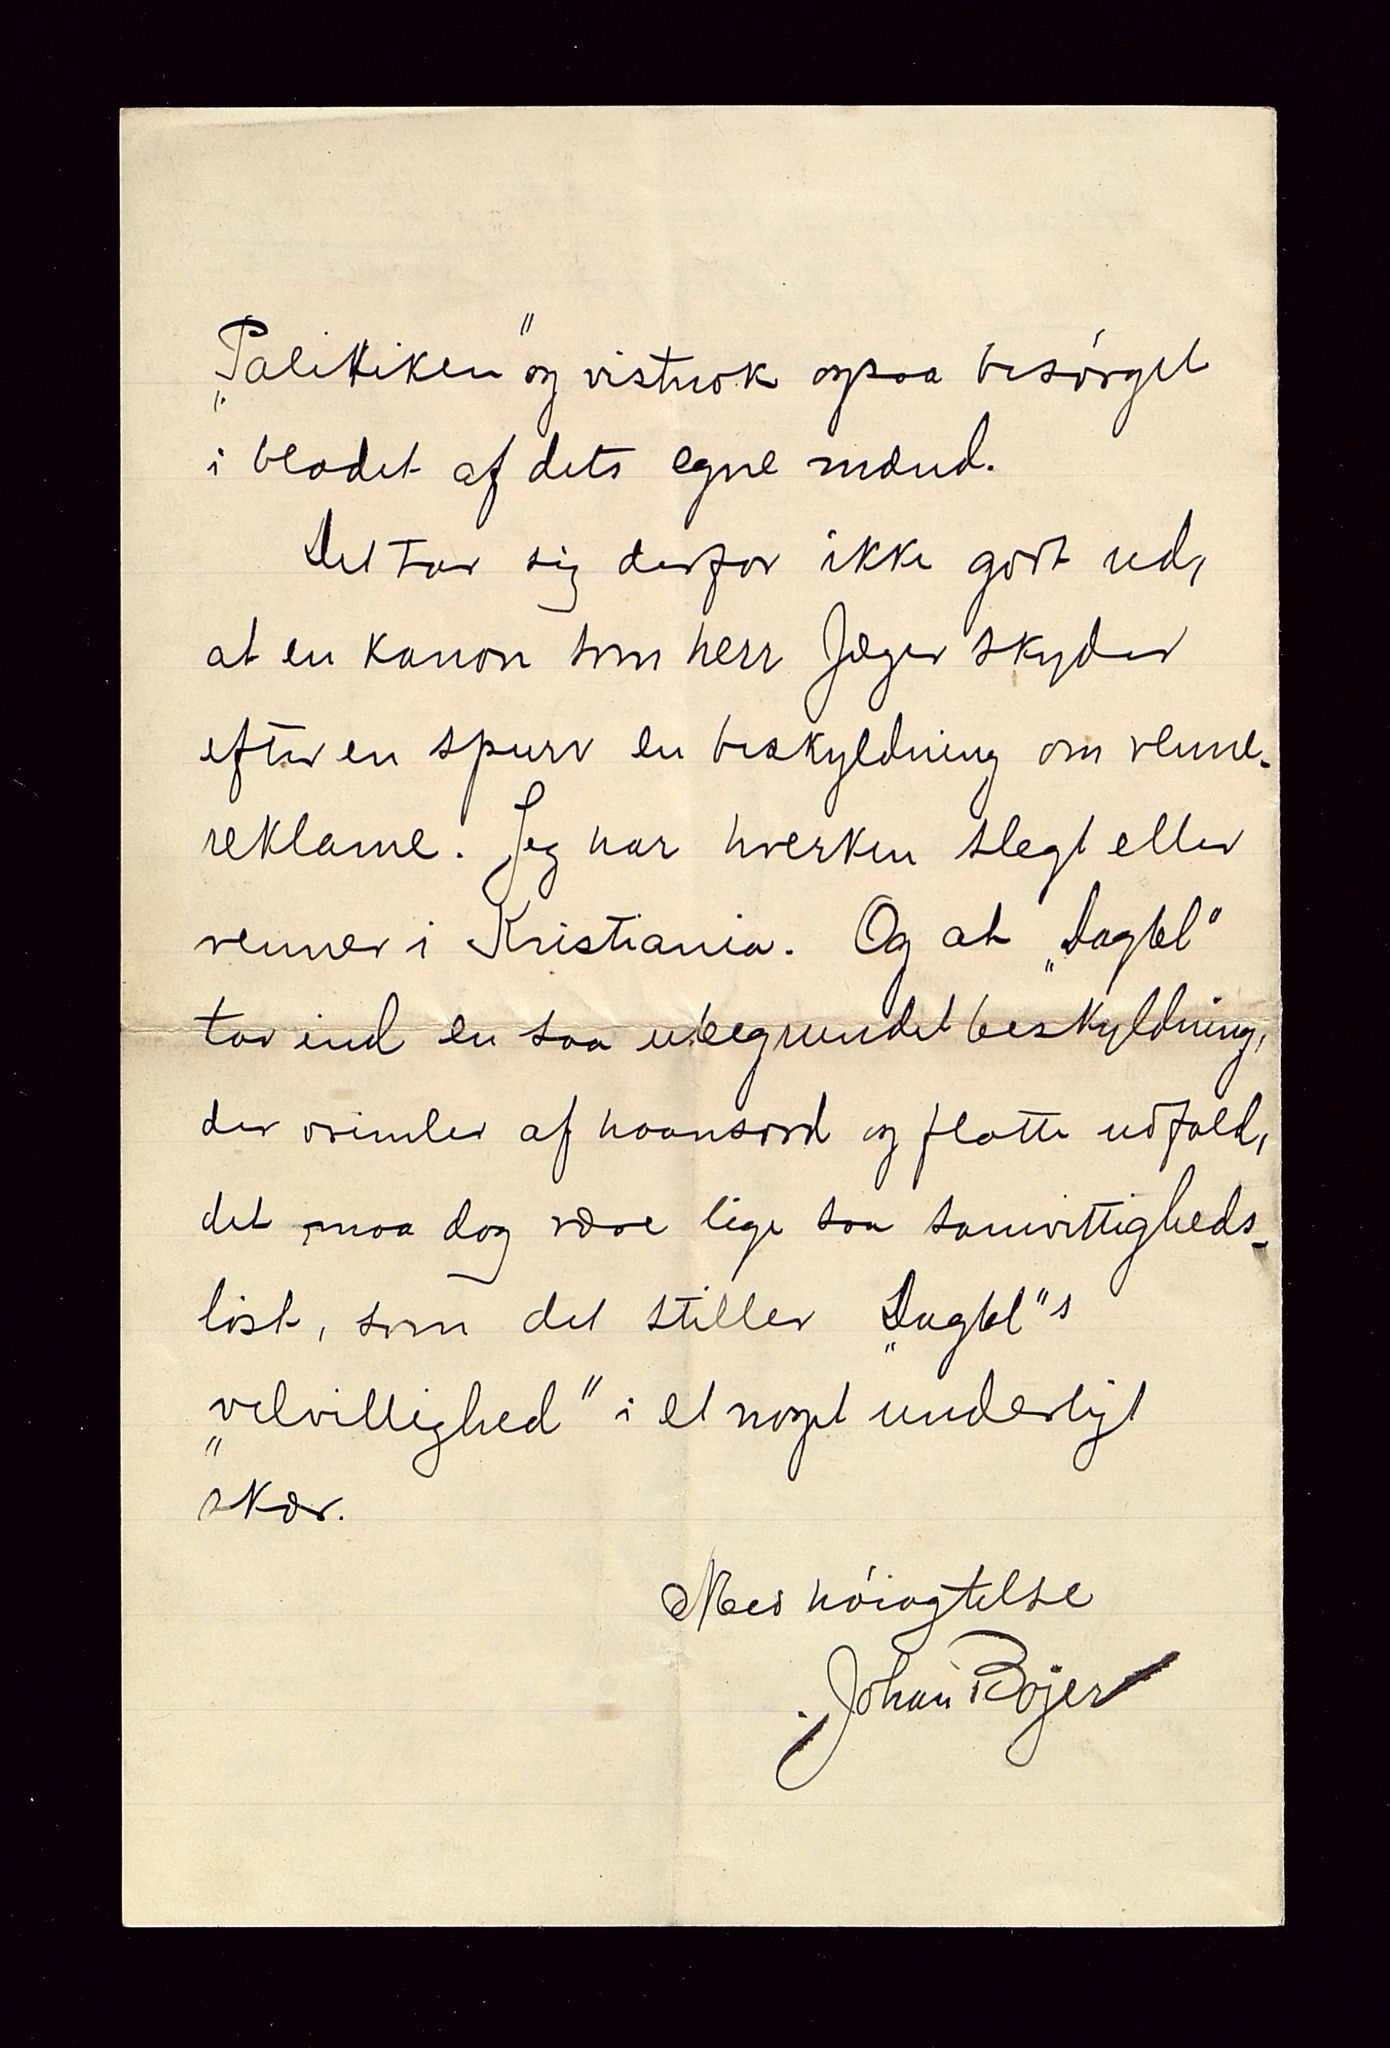 „Politikken" og vistnok ogsaa besørget
i bladet af dets egne mænd.
Det tar sig derfor ikke godt ud,
at en kanon som herr Jæger skyder
efter en spurv en beskyldning om venne-
reklame. Jeg har hverken slegt eller
venner i Kristiania. Og at „Dagbl"
tar ind en saa ubegrundet beskyldning,
der vrimler af haansord og flotte udfald,
det maa dog være lige saa samvittigheds-
løst, som det stiller „Dagbl"s
„velvillighed" i et noget underligt
skær.
Med høiagtelse
Johan Bojer